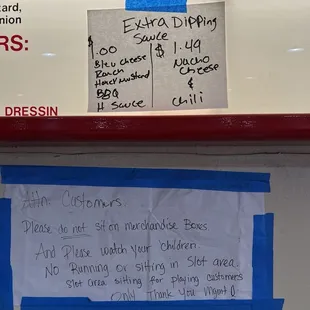 ard,
nion
RS:
DRESSIN
Extra Dipping
Sauce
$1.00
Bleu cheese
Ranch
Honey Mustard
BBQ
H Sauce
$1.49
Nacho
Cheese
&
Chili
Attn: Customers.
Please do not sit on merchandise Boxes.
And Please watch your children.
NO Running or sitting in Slot area.
Slot area sitting for playing customers
Only Thank You Mgmt